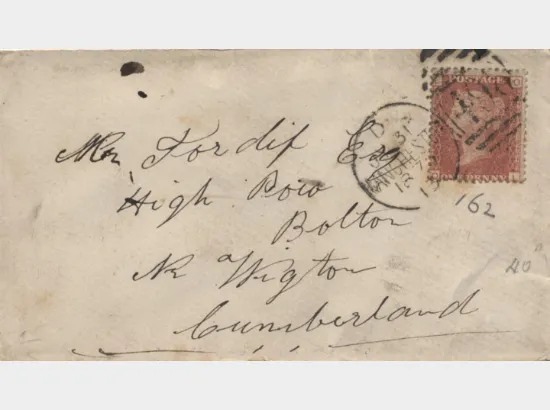 Mr Fordif Esq
High Bow
Bolton
Nr Wigton
Cumberland
POSTAGE
ONE PENNY
162
40